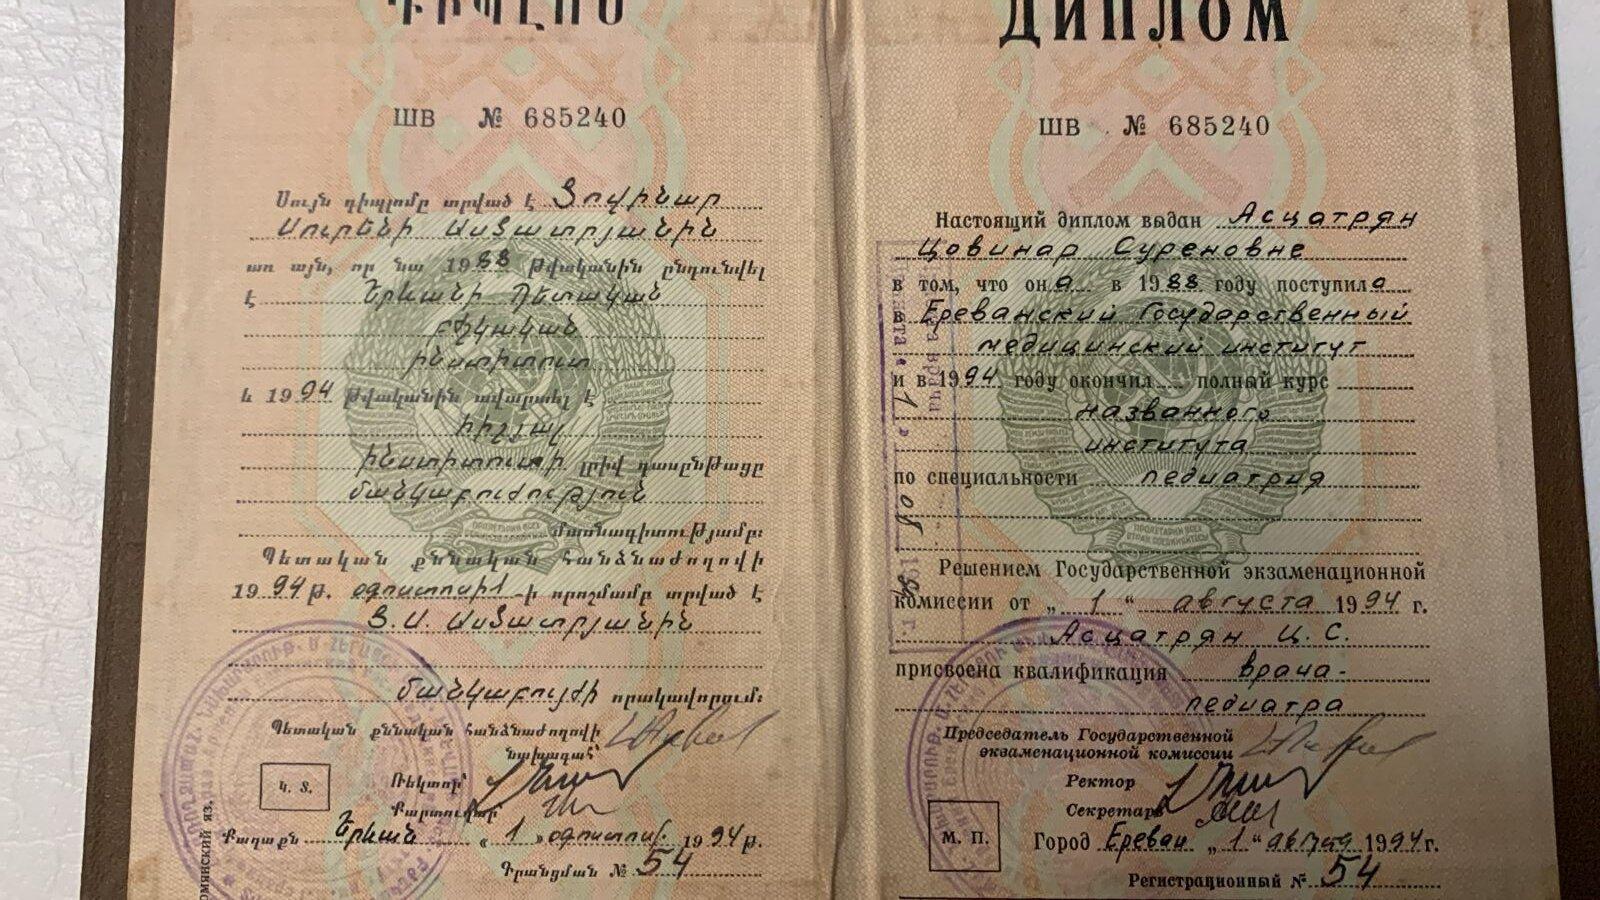 ԴԻՊԼՈՄ
ШВ № 685240
Սույն դիպլոմը տրված է Ծովինար
Սուրենի Ասծատրյանին
առ այն, որ նա 1988 թվականին ընդունվել
է Երևանի Պետական
բժշկական
ինստիտուտ
և 1994 թվականին ավարտել է
հիշյալ
ինստիտուտի լրիվ դասընթացը
մանկաբուժություն
մասնագիտությամբ:
Պետական քննական հանձնաժողովի
1994 թ. օգոստոսի 1-ի որոշմամբ տրված է
Ծ. Ս. Ասծատրյանին
մանկաբույժի որակավորում:
Պետական քննական հանձնաժողովի
նախագահ՝
Ռեկտոր՝
Քարտուղար՝
Կ. Տ.
Քաղաքն Երևան « 1 » օգոստոսի 1994 թ.
Գրանցման № 54
ДИПЛОМ
ШВ № 685240
Настоящий диплом выдан Асцатрян
Цовинар Суреновне
в том, что она в 1988 году поступила
в Ереванский Государственный
медицинский институт
и в 1994 году окончил полный курс
названного
института
по специальности педиатрия
Решением Государственной экзаменационной
комиссии от „ 1 “ августа 1994 г.
Асцатрян Ц. С.
присвоена квалификация врача-
педиатра
Председатель Государственной
экзаменационной комиссии
Ректор
Секретарь
М. П.
Город Ереван „ 1 “ августа 1994 г.
Регистрационный № 54